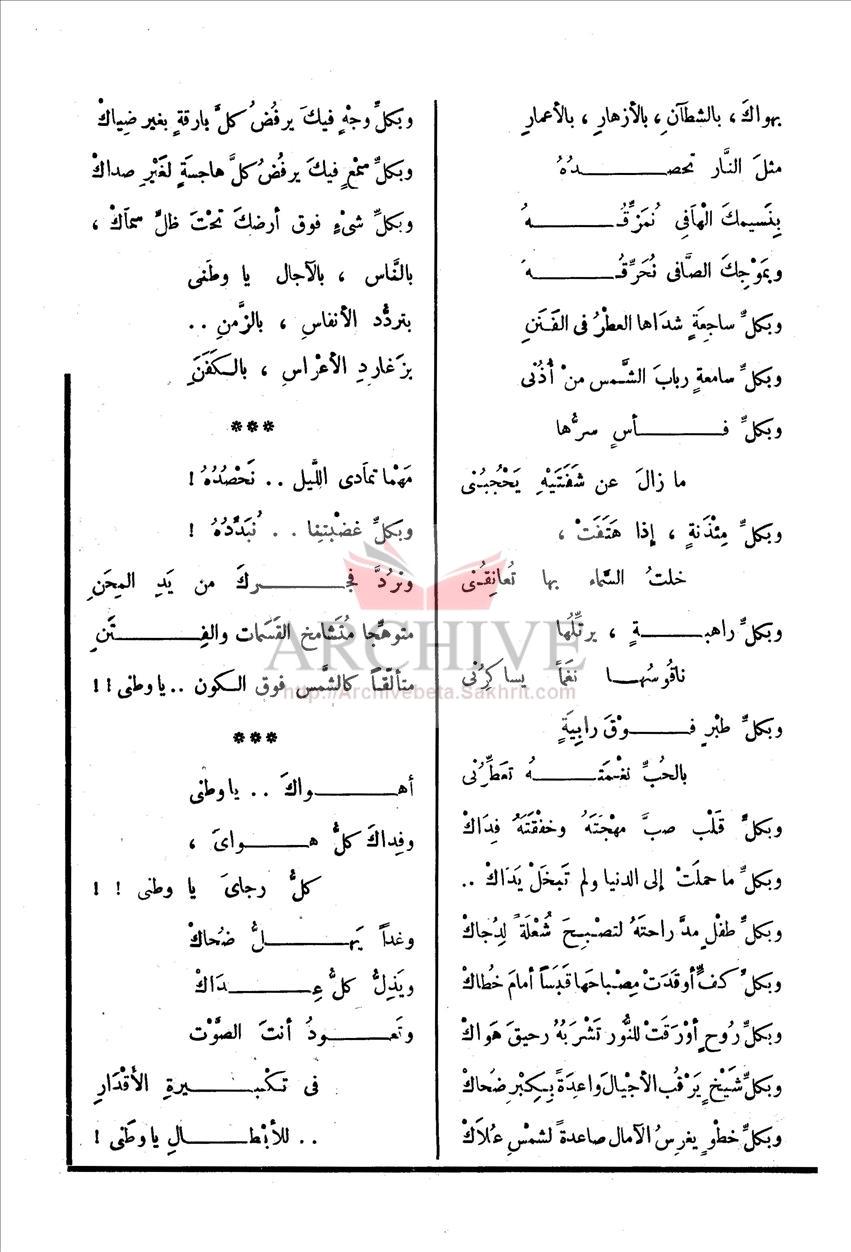 بهواكَ ، بالشطآنِ ، بالأزهارِ ، بالأعمارِ
مثلَ النَّار نحصدُهُ
بِنَسيمكَ الهَافى نُمَزِّقُهُ
وبمَوْجِكَ الصَّافى نُحَرِّقُهُ
وبكلِّ ساجعَةٍ شدَاها العطْرُ فى الفَنَنِ
وبكلِّ سامعةٍ ربابَ الشَّمس منْ أُذُنْى
وبكلِّ فأسٍ سرُّها
ما زالَ عن شَفَتَيْهِ يَحْجُبُنى
وبكلِّ مِئْذَنةٍ ، إذا هَتَفَتْ ،
خلتُ السَّماء بها تُعانِقُنى
وبكلِّ راهبةٍ ، يرتِّلُها
ناقُوسُها نغَماً يساكِرُنى
وبكلِّ طيْرٍ فوْقَ رابِيَةٍ
بالحُبِّ نغْمَتهُ تعَطِّرُنى
وبكلِّ قَلْب صبَّ مهْجَتَهُ وخفْقتَهُ فِدَاكْ
وبكلِّ ما حملَتْ إلى الدنيا ولم تَبخَلْ يَدَاكْ ..
وبكلِّ طفْلٍ مدَّ راحتَهُ لتصْبِحَ شُعْلَةً لِدُجاكْ
وبكلِّ كفٍّ أوقدَتْ مِصْباحَها قبَسًا أمامَ خُطاكْ
وبكلِّ رُوحٍ أوْرَقَتْ للنُّور تَشْرَبُهُ رحيقَ هَواكْ
وبكلِّ شَيْخٍ يَرْقبُ الأجْيالَ واعِدَةً بِبِكْرِ ضُحاكْ
وبكلِّ خطْوٍ يغرسُ الآمال صاعدةً لشمْسِ عُلاَكْ
وبكلِّ وجْهٍ فيكَ يرفُضُ كلَّ بارقةٍ بغير ضِياكْ
وبكلِّ سمْعٍ فيكَ يرفُضُ كلَّ هاجسَةٍ لغَيْرِ صداكْ
وبكلِّ شىْءٍ فوق أرضكَ تحْتَ ظلِّ سماَكْ ،
بالنَّاس ، بالآجال يا وطَنى
بتردُّد الأنفاسِ ، بالزَّمنِ ..
بزَغاردِ الأعْراسِ ، بالكَفَنِ
***
مَهْما تمادَى اللَّيل .. نَحْصُدُهُ !
وبكلِّ غضْبتِنا .. نُبَدِّدُهُ !
ونرُدُّ فجْركَ من يَدِ المِحَنِ
متوهِّجا مُتَشامخ القَسَمات والفِتَنِ
متألّقاً كالشَّمْس فوق الكون .. يا وطنى !!
***
أهواكَ .. يا وطنى
وفِداكَ كلُّ هواىَ ،
كلُّ رجاىَ يا وطنى ! !
وغداً يَهلُّ ضُحاكْ
ويَذِلُّ كلُّ عِدَاكْ
وتَعودُ أنتَ الصَّوْت
فى تكْبيرةِ الأقْدَارِ
.. للأبْطالِ يا وطَنى !
ARCHIVE
http://Archivebeta.Sakhrit.com